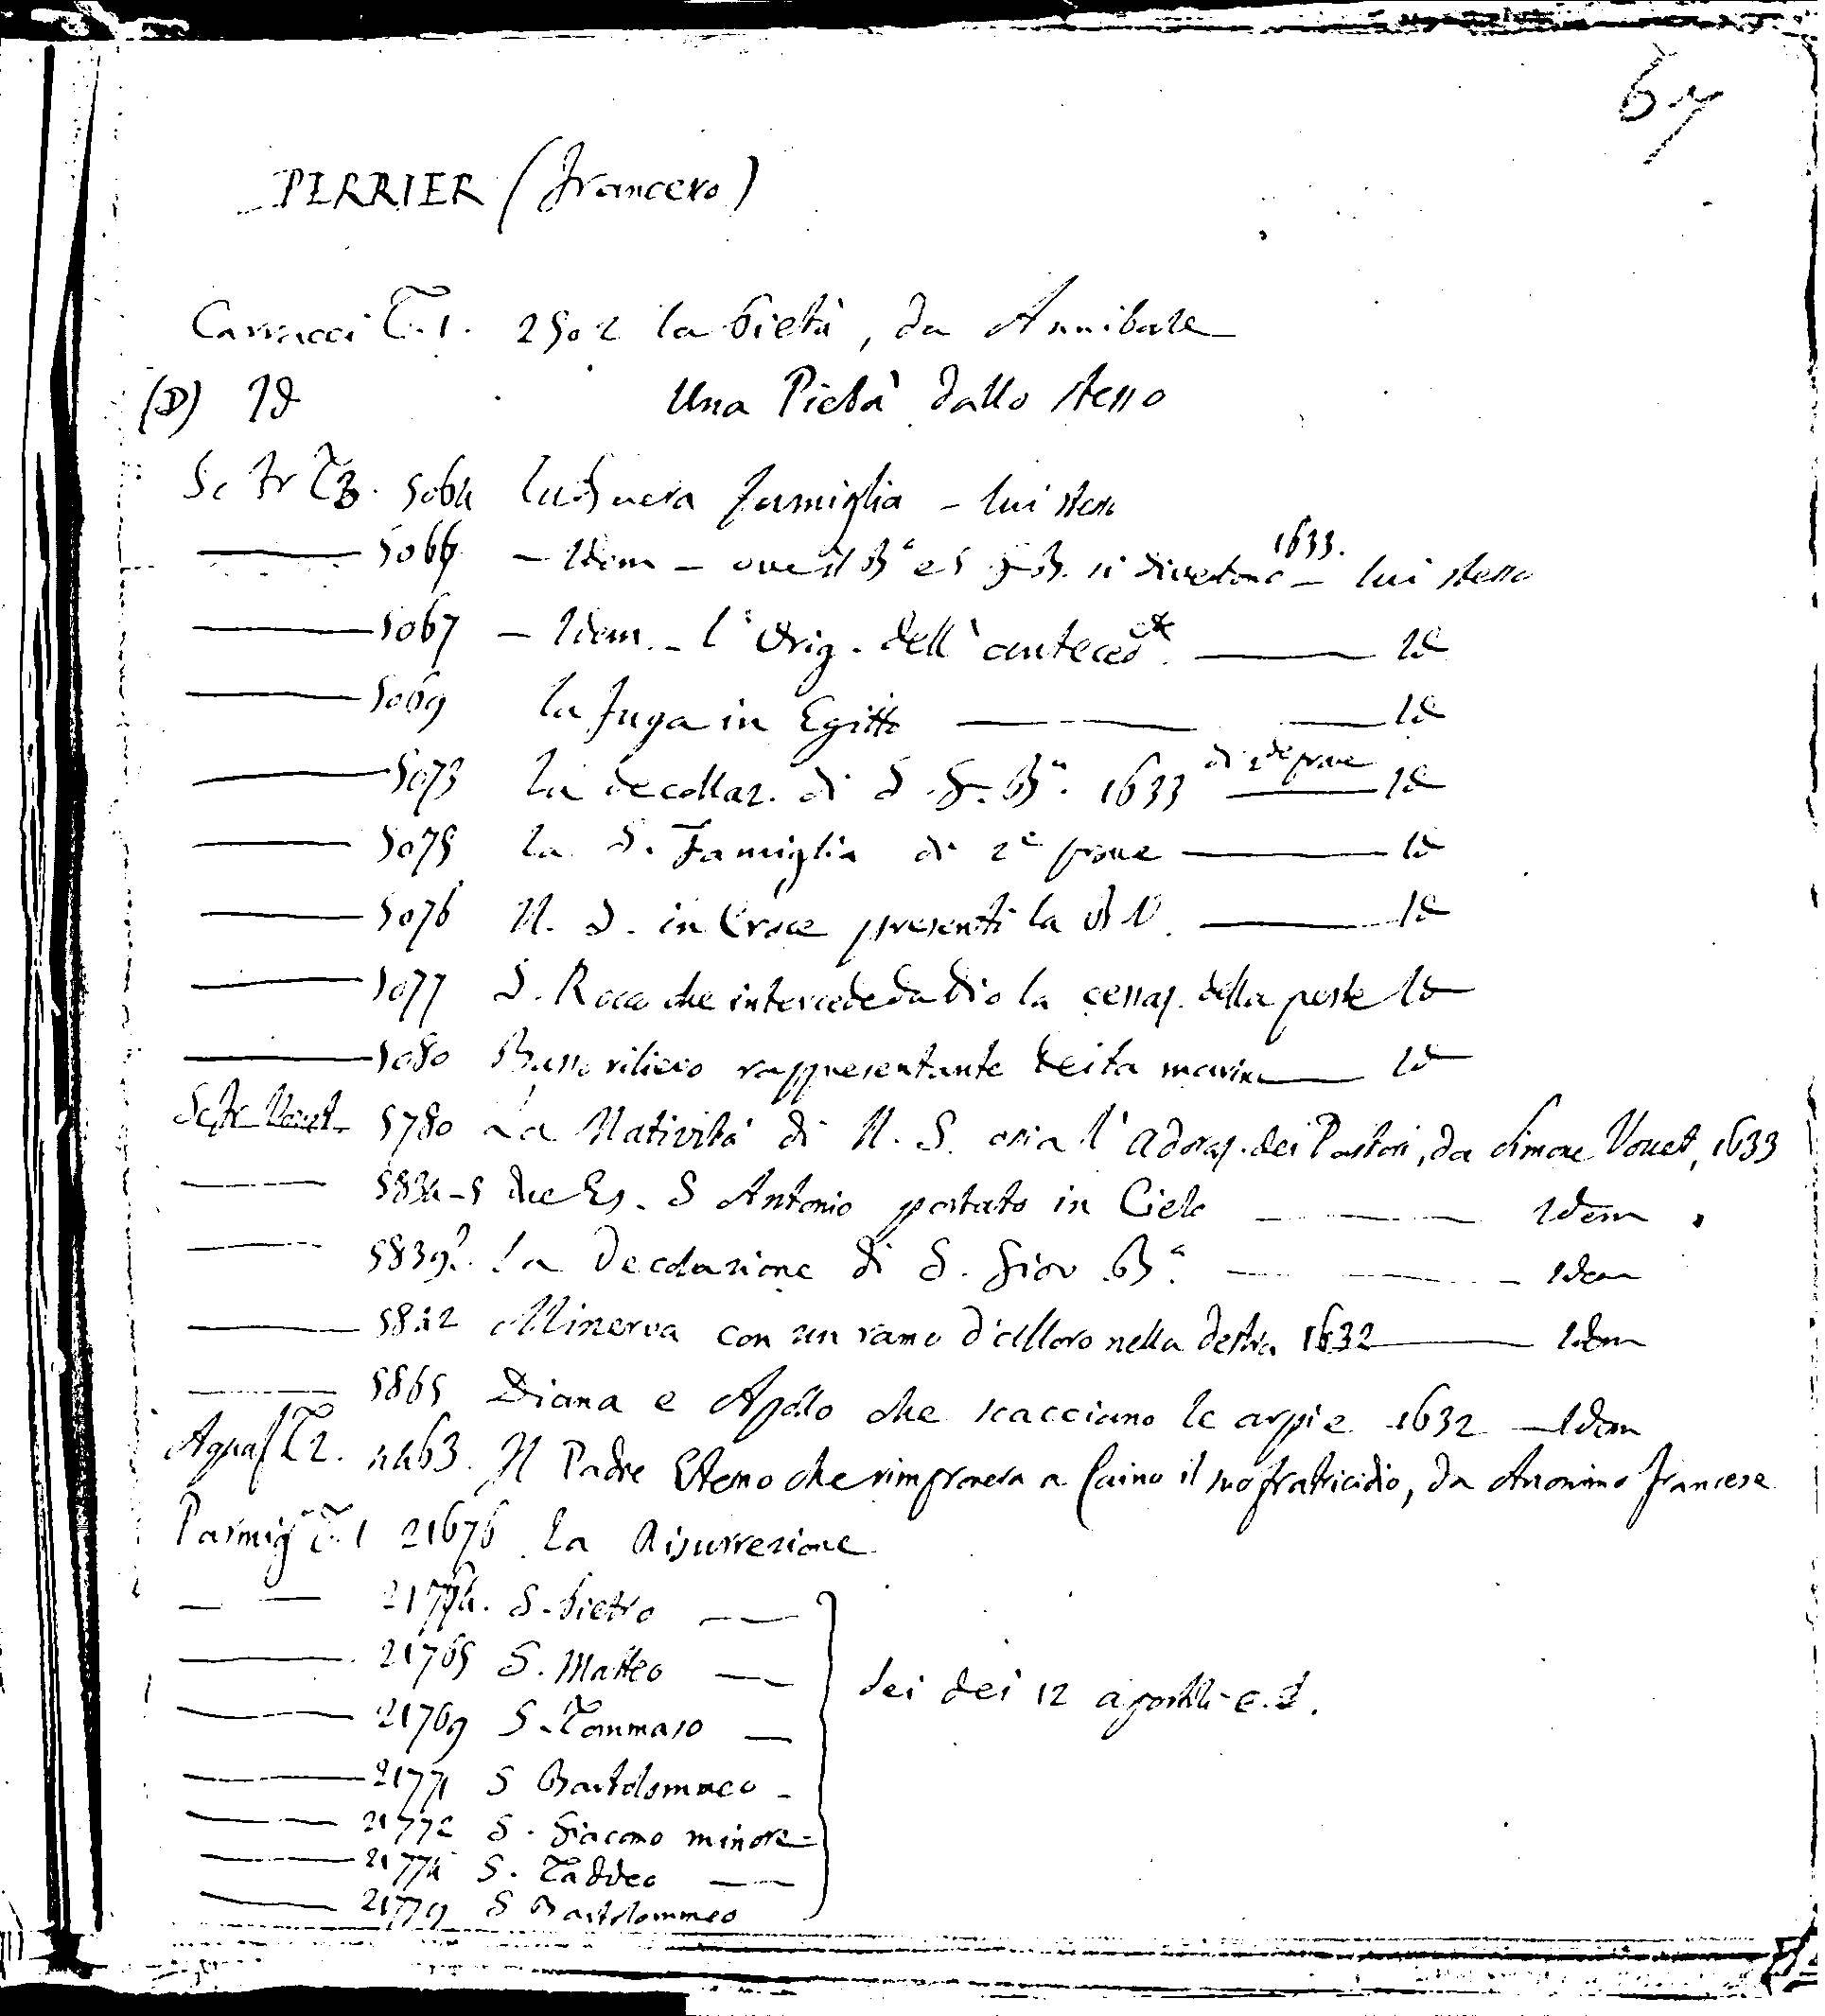 67
PERRIER (Francesco)
Carracci T. 1. 2502 la Pietà, da Annibale
(D) Id Una Pietà dallo stesso
Sc Fr T3. 5064 la Sacra famiglia - lui stesso
5066 - Idem - ove il Bº e S G. B. si divertono 1633. - lui stesso
5067 - Idem. - l'Orig. dell'anteced.te Id
5069 la Fuga in Egitto Id
5073 la decollaz. di S. G. Bª. 1633 di 2de prove Id
5075 la S. Famiglia di 2e prove Id
5076 N. S. in Croce presenti la B V. Id
5077 S. Rocco che intercede da Dio la cessaz. della peste Id
5080 Basso rilievo rappresentante Deità marine Id
Sc Fr Vouet 5780 La Natività di N. S. ossia l'Adoraz. dei Pastori, da Simone Vouet, 1633
5834-5 due Es. S Antonio portato in Cielo Idem
5839? La Decolazione di S. Giov Bª. Idem
5842 Minerva con un ramo d'alloro nella destra 1632 Idem
5865 Diana e Apollo che scacciano le arpie 1632 - Idem
Aquaf T2. 4463. Il Padre Eterno che rimprovera a Caino il suo fratricidio, da Anonimo francese
Parmigº T. 1 21676 La Risurrezione
21764. S. Pietro
21765 S. Matteo
21769 S. Tommaso
21771 S Bartolommeo
21772 S. Giacomo minore
21774 S. Taddeo
21779 S Bartolommeo
dei dei 12 apostoli